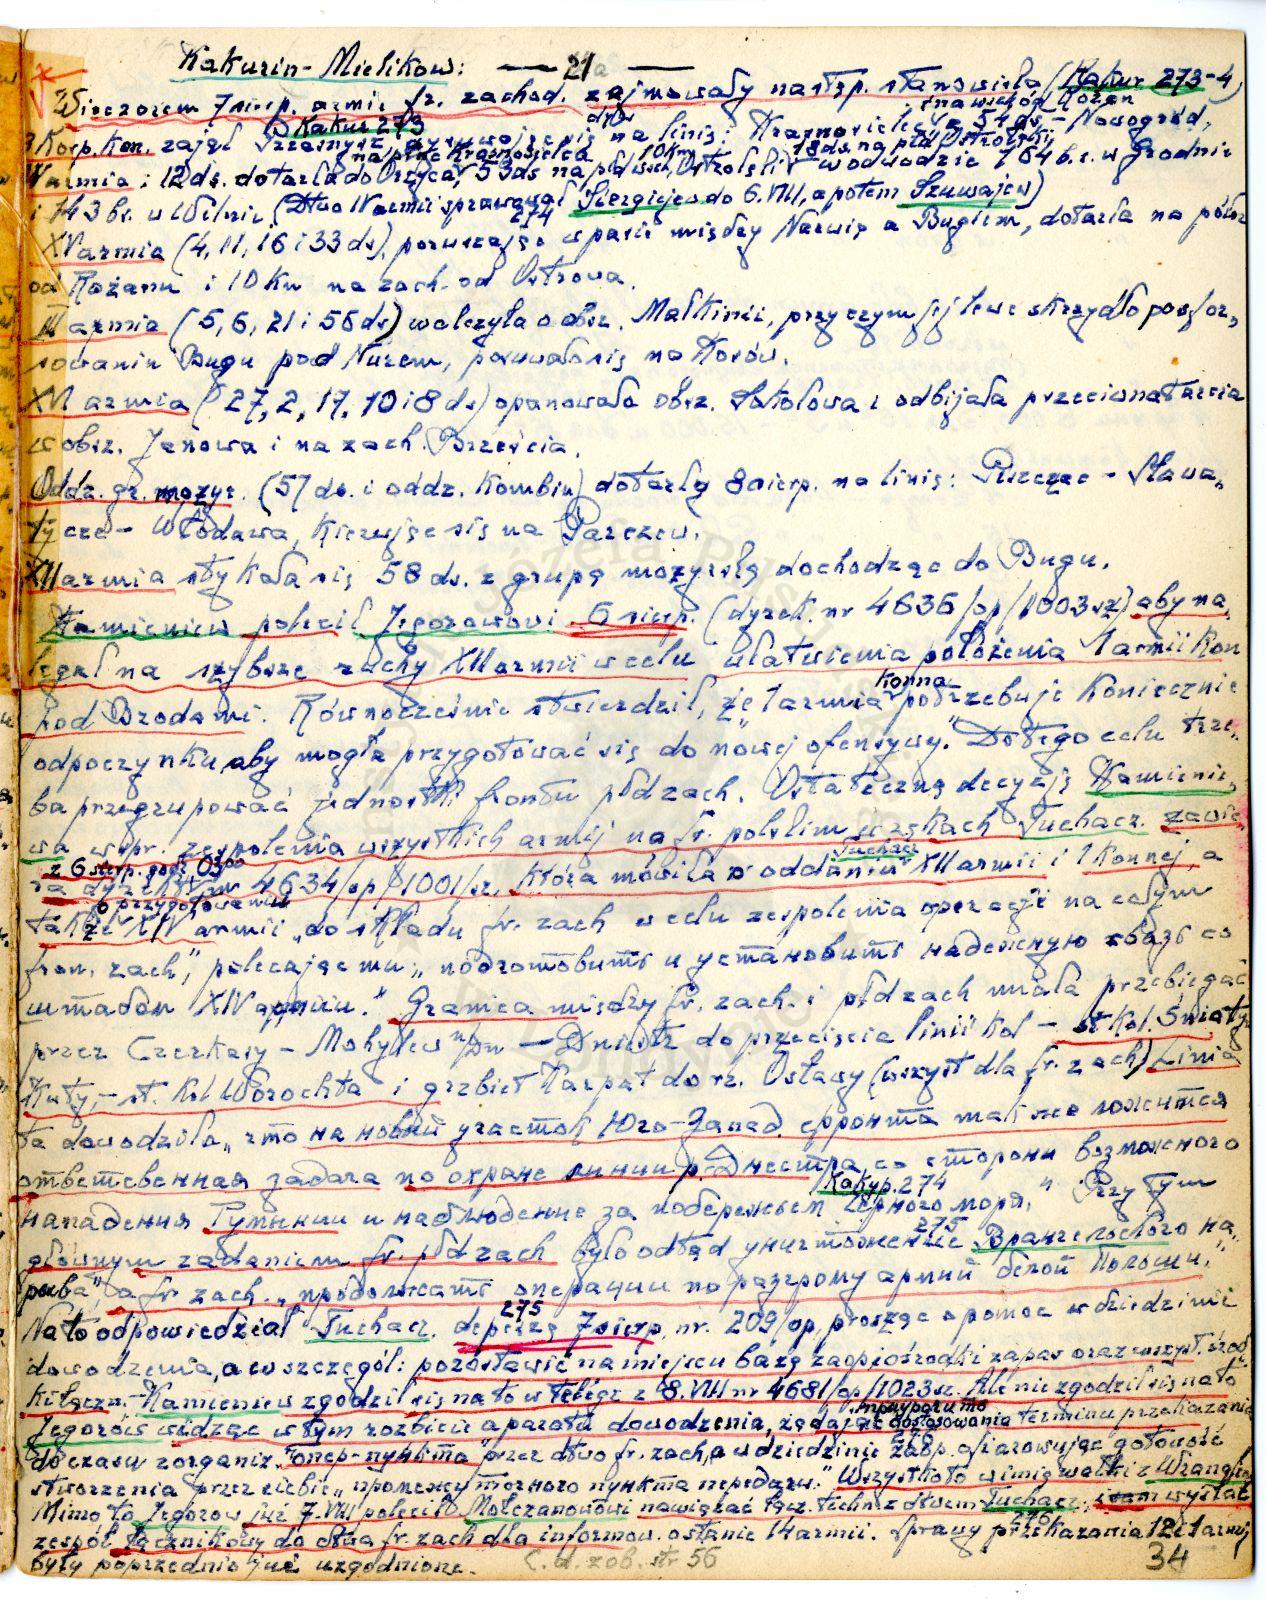 Kakurin - Mielikow: — 21a —
Wieczorem 7 sierp. armie fr. zachod. zajmowały następ. stanowiska (Kakur 273-4)
Kakur 273
3 Korp. Kon. zajął Przasnysz, na linię: Krasnosielc - Nowogród,
na płn. Krasnosielca 10 km 18 ds. na płd. Ostrołęki
IV armia i 12 ds. dotarła do Orzyca, 53 ds na płd wsch. Ostrołęki w odwodzie 164 b.s. w Grodnie
i 143 br. w Wilnie (Dtwo IV armii sprawował Siergiejew do 6.VIII, a potem Szuwajew)
274
XV armia (4, 11, 16 i 33 ds), poruszając w pasie między Narwią a Bugiem, dotarła na półn.
od Rożanu i 10 km na zach. od Ostrowa.
III armia (5, 6, 21 i 56 ds) walczyła o obsz. Małkinii, przy czym jej lewe skrzydło po sfor-
sowaniu Bugu pod Nurem, posuwało się na Kosów.
XVI armia (27, 2, 17, 10 i 8 ds) opanowała obsz. Sokołowa i odbijała przeciwnatarcia
w obsz. Janowa i na zach. Brześcia.
Oddz. gr. mozyr. (57 ds. i oddz. kombin) dotarły 8 sierp. na linię: Piszczac - Sława-
tycze - Włodawa, kierując się na Parczew.
XII armia stykała się 58 ds. z grupą mozyrską dochodząc do Bugu.
Kamieniew polecił Jegorowowi 6 sierp. (dyrekt. nr 4636/op/1003 sz) aby na-
legał na szybsze ruchy XII armii w celu ułatwienia położenia 1 armii Kon
pod Brodami. Równocześnie stwierdził, że "1 armia konna potrzebuje koniecznie
odpoczynku aby mogła przygotować się do nowej ofensywy." Do tego celu trze-
ba przegrupować jednostki frontu płd zach. Ostateczną decyzję Kamienie-
wa w spr. zespolenia wszystkich armij na fr. polskim w rękach Tuchacz. zawie-
z 6 sierp. godz 03⁰⁰ Tuchacz
ra dyrektywa 4634/op/1001/sz, która mówiła o oddaniu XII armii i 1 Konnej, a
o przygotowaniu
także XIV armii „do składu fr. zach w celu zespolenia operacji na całym
fron. zach", polecając mu: „подготовить и установить надежную связь со
штабом XIV армии." Granica między fr. zach. i płd zach miała przebiegać
przez Czerkasy - Mohylew n/Dn - Dniestr do przecięcia linii kol - st. kol. Śniatyń
Kuty, - st. kol Worochta i grzbiet Karpat do rz. Osławy (wszyst dla fr. zach) Linia
ta dowodziła, что на новый участок Юго-Запад. фронта также ложится
ответственная задача по охране линии р. Днестра, со стороны возможного
Какур. 274
нападения Румынии и наблюдение за побережьем Черного моря." Przy tym
275
głównym zadaniem fr. płd zach było odtąd уничтожение Врангелевского на-
рыва", a fr zach. „продолжать операции по разгрому армий белой Польши."
275
Na to odpowiedział Tuchacz. depeszą 7 sierp. nr. 209/op, prosząc o pomoc w dziedzinie
dowodzenia, a w szczegól: pozostawić na miejscu bazę zaop i ośrodki zapas oraz wszyst. środ-
ki łączn. - Kamieniew zgodził się na to w telegr z 8.VIII nr 4681/op/1023 sz. Ale nie zgodził się na to
Jegorow widząc w tym rozbicie aparatu dowodzenia, żądając dostosowania terminu przekazania
276
do czasu zorganiz. "опер-пункта" przez dtwo fr. zach, a w dziedzinie zaop. ofiarowując gotowość
stworzenia przez siebie „промежуточного пункта передачи." Wszystko to w imię walki z Wranglem
Mimo to Jegorow już 7.VIII polecił Mołczanowowi nawiązać łącz. techn. z dtwem Tuchacz. i sam wysłał
276
zespół łącznikowy do dtwa fr. zach dla informow. o stanie 14 armii. Sprawy przekazania 12 i 1 armij
były poprzednio już uzgodnione. C. d. zob. str 56
34